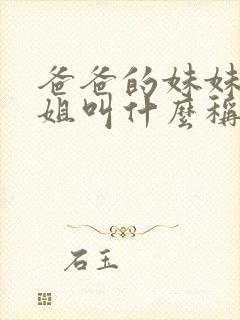 爸爸的妹妹
姐叫什麼稱
石玉